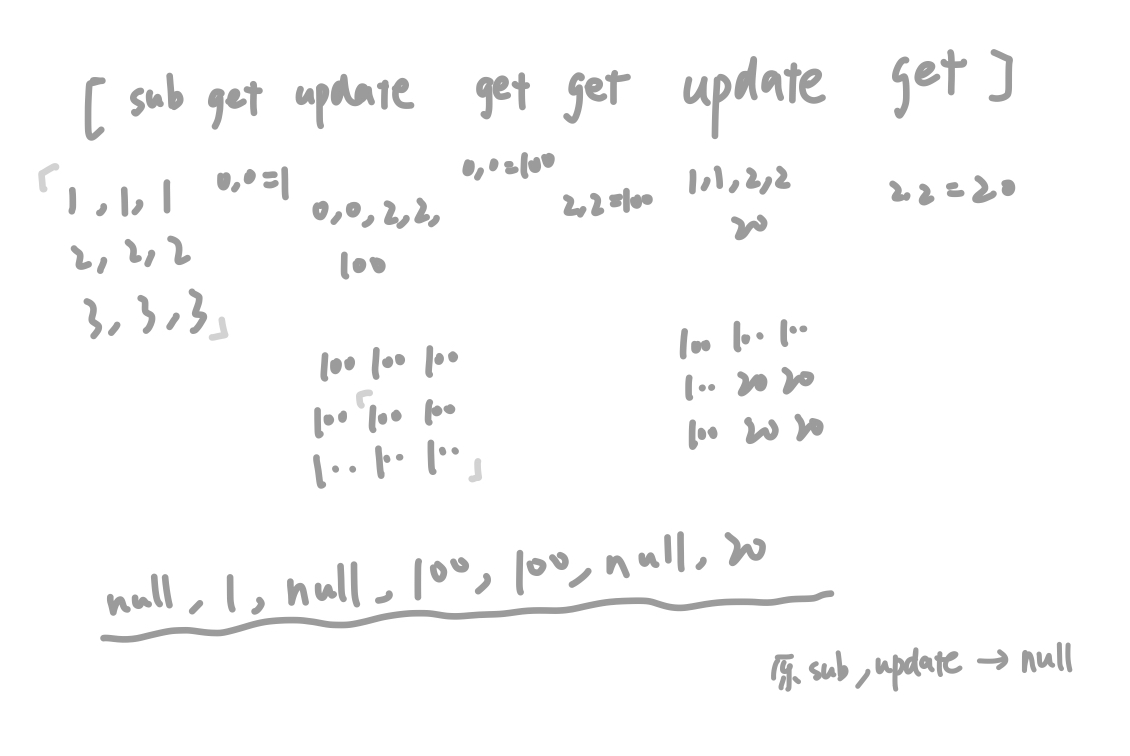 [ sub get update get get update get ]
「 1, 1, 1
2, 2, 2
3, 3, 3 」
0,0=1
0,0,2,2,
100
0,0=100
2,2=100
1,1,2,2
20
2,2=20
100 100 100
100 「100 100
100 100 100 」
100 100 100
100 20 20
100 20 20
null, 1, null, 100, 100, null, 20
sub, update → null